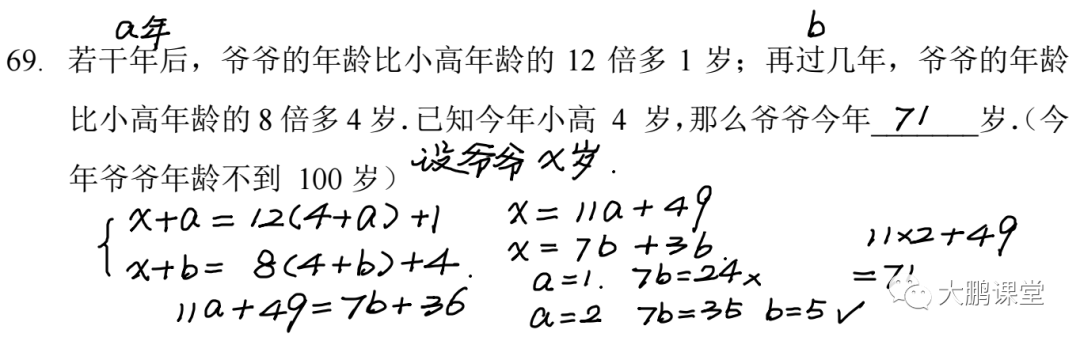 a年 b
69. 若干年后，爷爷的年龄比小高年龄的 12 倍多 1 岁；再过几年，爷爷的年龄
比小高年龄的 8 倍多 4 岁.已知今年小高 4 岁,那么爷爷今年 71 岁.（今
年爷爷年龄不到 100 岁） 设爷爷 x岁.
x+a = 12(4+a)+1 x = 11a+49
x+b = 8(4+b)+4. x = 7b+36. 11×2+49
a=1. 7b=24× =71
11a+49=7b+36 a=2 7b=35 b=5 ✓
大鹏课堂